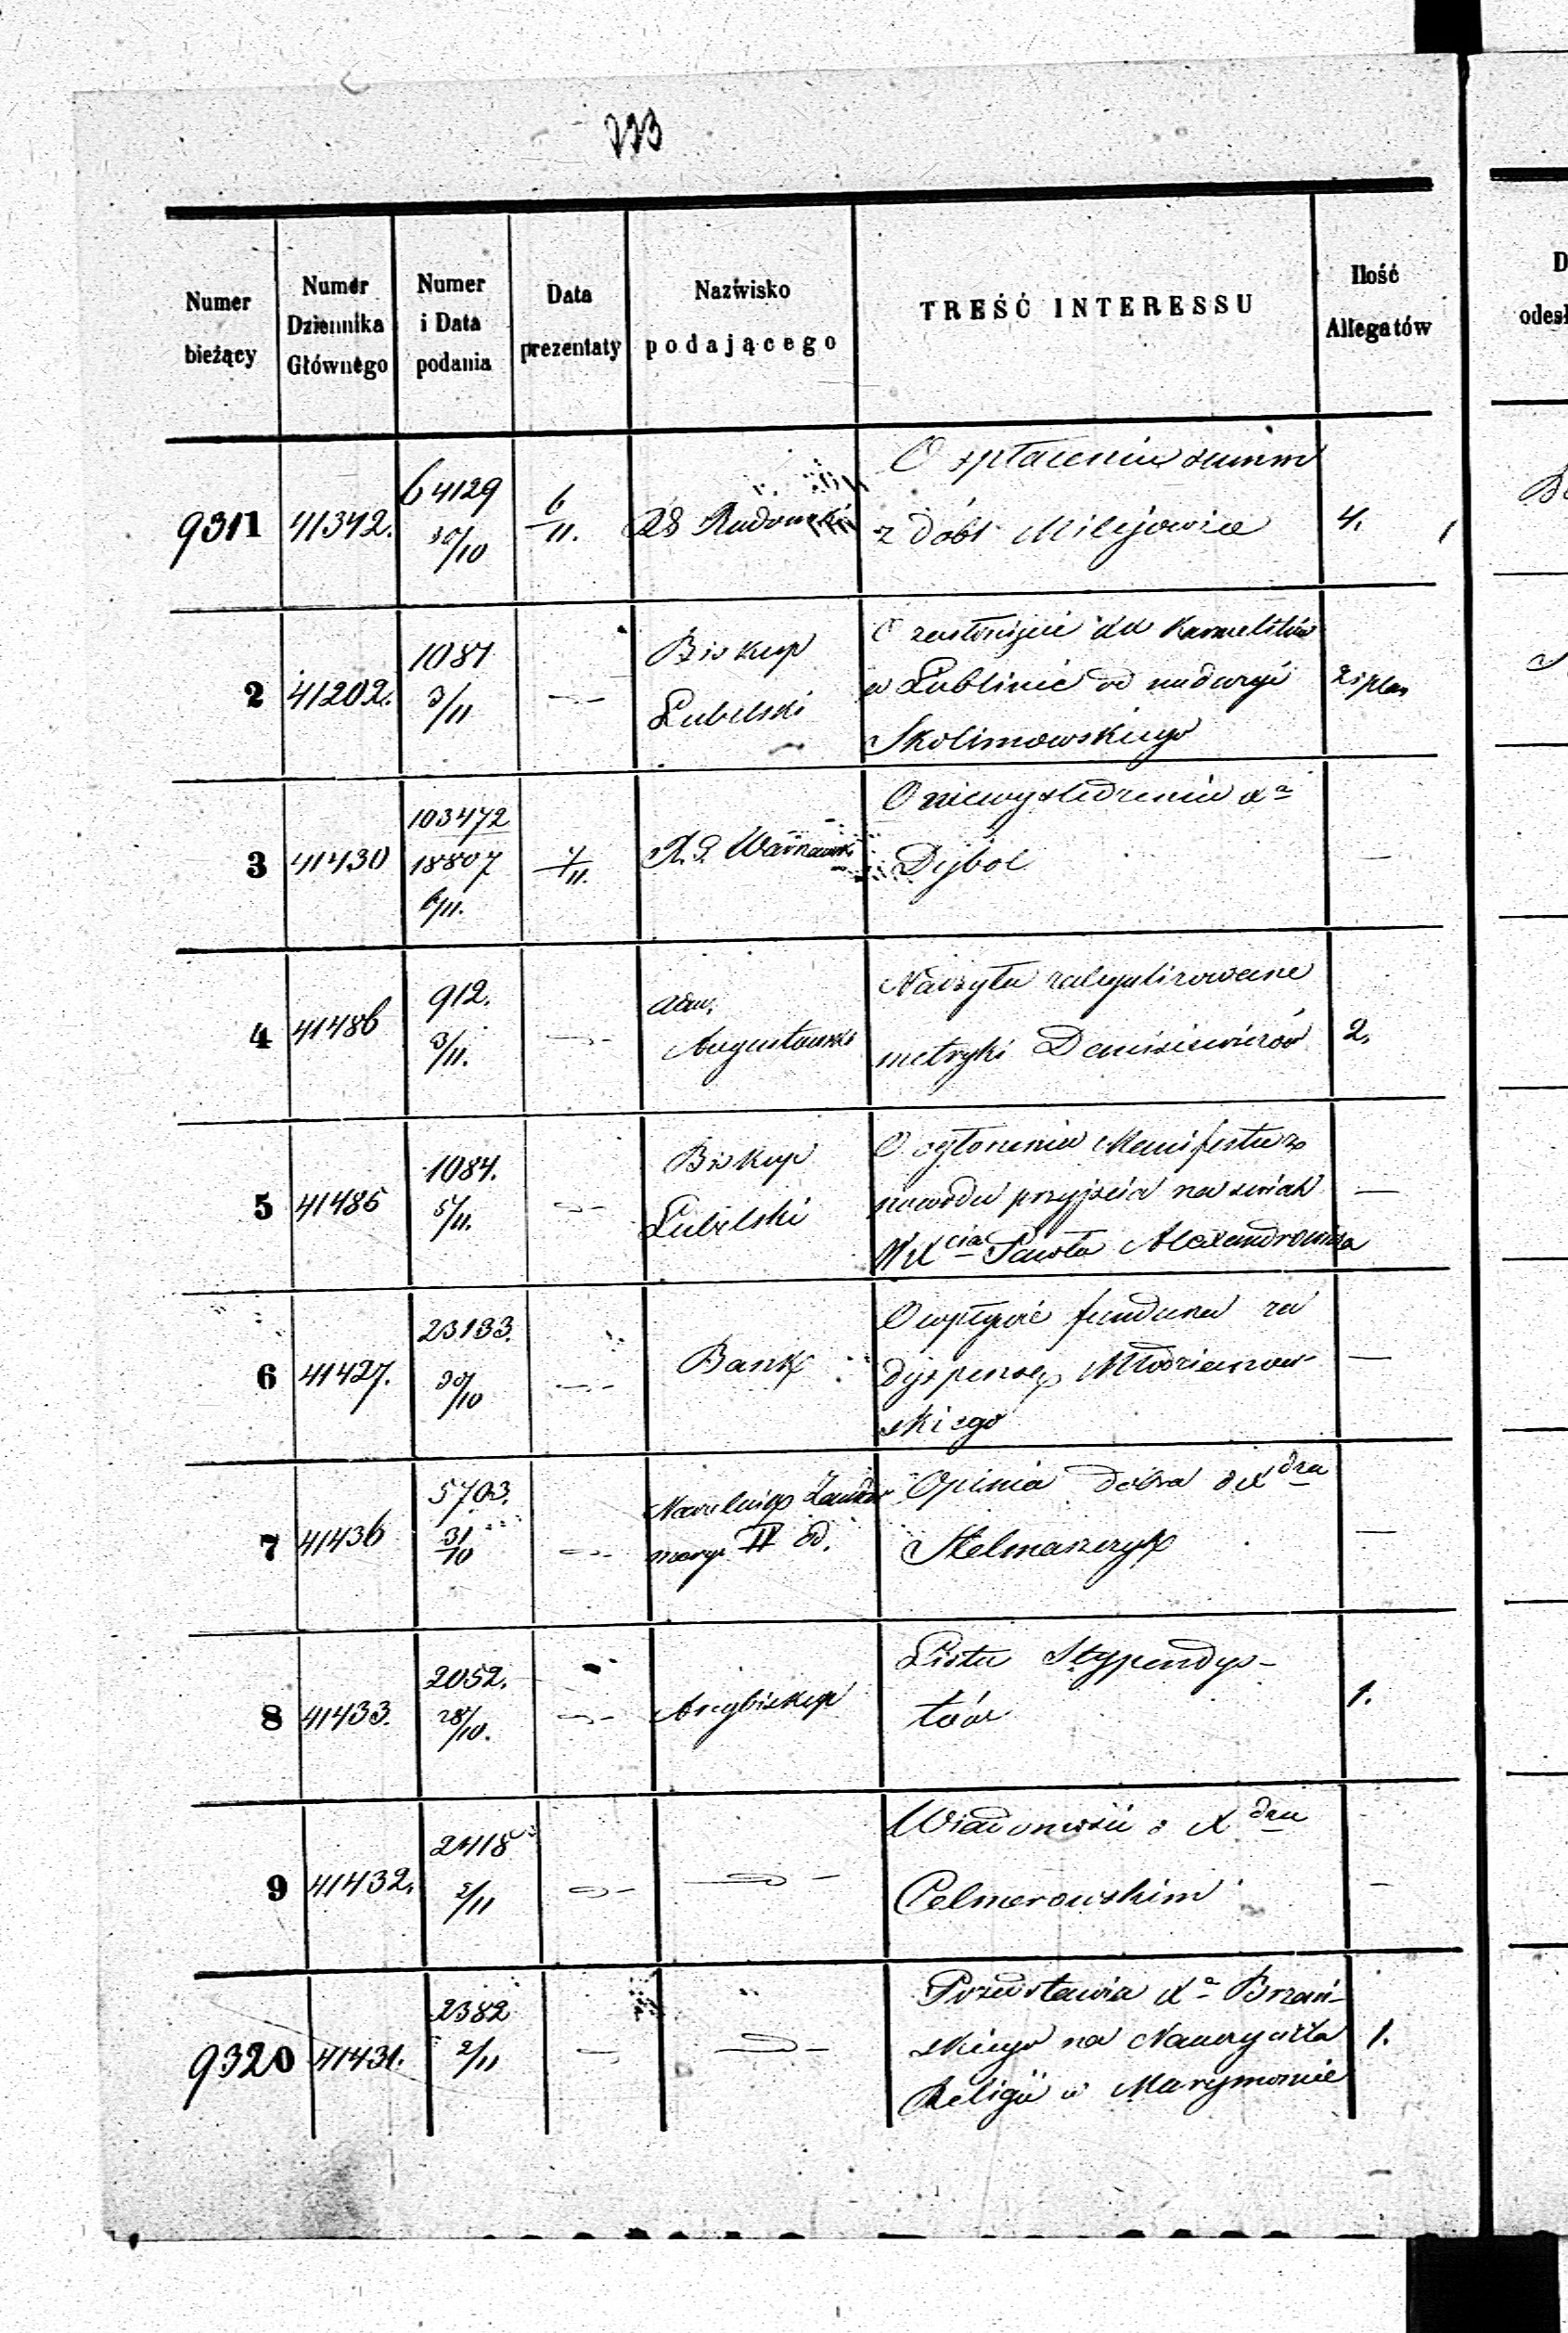 223
Numer bieżący | Numer Dziennika Głównego | Numer i Data podania | Data prezentaty | Nazwisko podającego | TREŚĆ INTERESSU | Ilość Allegatów
9311 | 41342. | 64129 30/10 | 6/11. | RG Radomski | O spłaceniu summ
z dóbr Milejowice | 4.
2 | 41202. | 1081 3/11 | Biskup Lubelski
w Lublinie od
Skolimowskiego
3 | 41430 | 103472 18807 6/11. | 7/11. | R.G. Warszawski | O niewyśledzeniu Xa
Dijbol | —
4 | 41486 | 912. 3/11. | Adm. Augustowski | Nadsyła zalegalizowane
metryki | 2.
5 | 41485 | 1084. 5/11. | Biskup Lubelski | O ogłoszeniu Manifestu z
powodu przyjścia na świat
WXcia Pawła Alexandrowicza | —
6 | 41427. | 23133. 30/10 | Bank | O wpływie fundusza za
dyspensę Młodzianow-
skiego | —
7 | 41436 | 5703. 31/10 | Naczelnik Żandar
meryi II Od. | Opinia dobra o Xdzu
Stelmaszczyk | —
8 | 41433. | 2052. 28/10. | Arcybiskup | Lista Stypendys-
tów | 1.
9 | 41432. | 2418 2/11 | Wiadomość o Xdzu
Celmerowskim | —
9320 | 41431. | 2382 2/11 | Przedstawia Xa Brzań-
skiego na Nauczyciela
Religii w Marymoncie | 1.
D
odesł